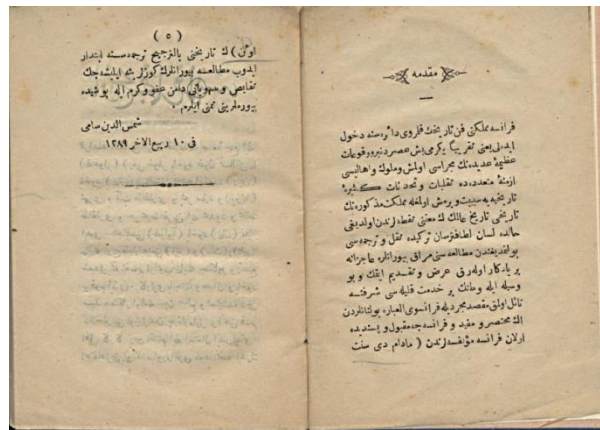 مقدمه
فرانسه مملكتی فن تاریخك قلروی دائره‌سنه دخول
ایده‌لی یعنی تقریباً یكرمی بش عصردنبرو وقوعات
عظیمهٔ عدیده‌نك مجراسی اولمش وملوك واهالیسی
ازمنهٔ متعدده‌ده تقلبات و تحدثات كثیرهٔ
تاریخیه‌یه سببیت ویرمش اولمغله مملكت مذكوره‌نك
تاریخی تاریخ عالمك اك معتنی نقطه‌لرندن اولدیغی
حالده لسان لطافترسان تركیده نقل و ترجمه‌سی
بولندیغندن مطالعه‌سنی مراق بیورانلره عاجزانه
بر یادكار اوله‌رق عرض و تقدیم ایتمك و بو
وسیله ایله وطنك بر خدمت قلیله‌سی شرفنه
نائل اولمق مقصد مجردیله فرانسوی العباره بولنانلردن
اك مختصر و مفید و فرانسه‌جه مقبول و پسندیده
اولان فرانسه مؤلفه‌لرندن ( مادام دی سنت
( ٥ )
اوئن ) ك تاریخنی بالترجیح ترجمه‌سنه ابتدار
ایدوب مطالعه‌سنه بیورانلرك كوزلرینه ایلیشه‌جك
نقایص و سهویاتی دامن عفو وكرم ایله پوشیده
بیورملرینی تمنی ایلرم .
شمس الدین سامی
فی ١٠ ربیع الاخر ١٢٨٩